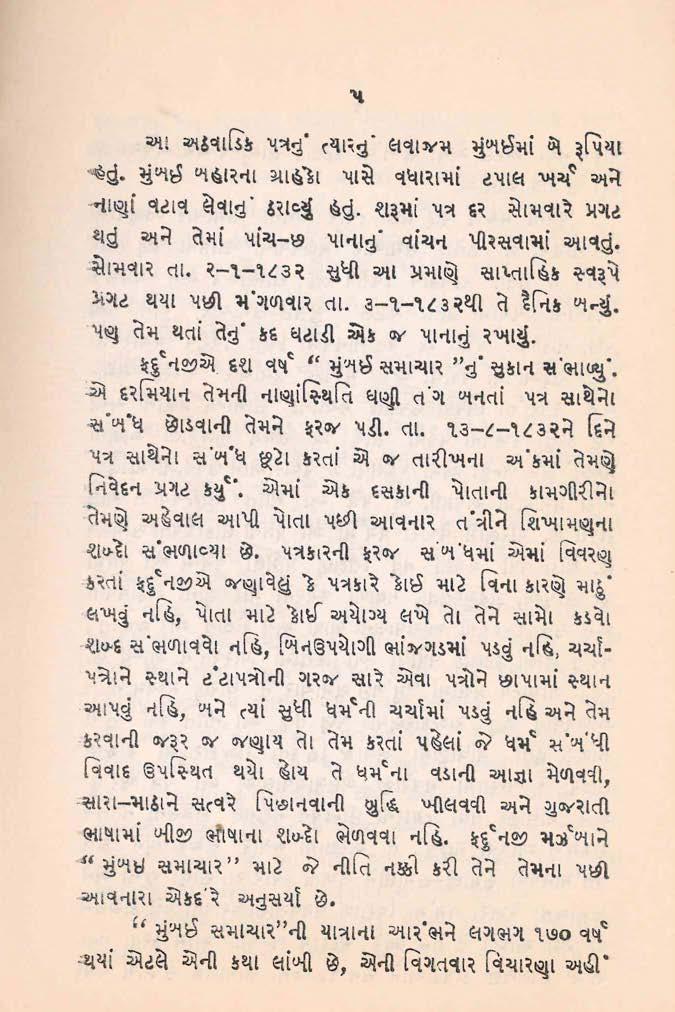 ૫
આ અઠવાડિક પત્રનું ત્યારનું લવાજમ મુંબઈમાં બે રૂપિયા
હતું. મુંબઈ બહારના ગ્રાહકો પાસે વધારામાં ટપાલ ખર્ચ અને
નાણાં વટાવ લેવાનું ઠરાવ્યું હતું. શરૂમાં પત્ર દર સોમવારે પ્રગટ
થતું અને તેમાં પાંચ-છ પાનાનું વાંચન પીરસવામાં આવતું.
સોમવાર તા. ૨-૧-૧૮૩૨ સુધી આ પ્રમાણે સાપ્તાહિક સ્વરૂપે
પ્રગટ થયા પછી મંગળવાર તા. ૩-૧-૧૮૩૨થી તે દૈનિક બન્યું.
પણ તેમ થતાં તેનું કદ ઘટાડી એક જ પાનાનું રખાયું.
ફર્દુનજીએ દશ વર્ષ “ મુંબઈ સમાચાર ”નું સુકાન સંભાળ્યું.
એ દરમિયાન તેમની નાણાંસ્થિતિ ઘણી તંગ બનતાં પત્ર સાથેનો
સંબંધ છોડવાની તેમને ફરજ પડી. તા. ૧૩-૮-૧૮૩૨ને દિને
પત્ર સાથેનો સંબંધ છૂટો કરતાં એ જ તારીખના અંકમાં તેમણે
નિવેદન પ્રગટ કર્યું. એમાં એક દસકાની પોતાની કામગીરીનો
તેમણે અહેવાલ આપી પોતા પછી આવનાર તંત્રીને શિખામણના
શબ્દો સંભળાવ્યા છે. પત્રકારની ફરજ સંબંધમાં એમાં વિવરણ
કરતાં ફર્દુનજીએ જણાવેલું કે પત્રકારે કોઈ માટે વિના કારણે માઠું
લખવું નહિ, પોતા માટે કોઈ અયોગ્ય લખે તો તેને સામો કડવો
શબ્દ સંભળાવવો નહિ, બિનઉપયોગી ભાંજગડમાં પડવું નહિ, ચર્ચા-
પત્રોને સ્થાને ટંટાપત્રોની ગરજ સારે એવા પત્રોને છાપામાં સ્થાન
આપવું નહિ, બને ત્યાં સુધી ધર્મની ચર્ચામાં પડવું નહિ અને તેમ
કરવાની જરૂર જ જણાય તો તેમ કરતાં પહેલાં જે ધર્મ સંબંધી
વિવાદ ઉપસ્થિત થયો હોય તે ધર્મના વડાની આજ્ઞા મેળવવી,
સારા-માઠાને સત્વરે પિછાનવાની બુદ્ધિ ખીલવવી અને ગુજરાતી
ભાષામાં બીજી ભાષાના શબ્દો ભેળવવા નહિ. ફર્દુનજી મર્ઝબાને
“ મુંબઇ સમાચાર” માટે જે નીતિ નક્કી કરી તેને તેમના પછી
આવનારા એકદંરે અનુસર્યા છે.
“ મુંબઈ સમાચાર”ની યાત્રાના આરંભને લગભગ ૧૭૦ વર્ષ
થયાં એટલે એની કથા લાંબી છે, એની વિગતવાર વિચારણા અહીં